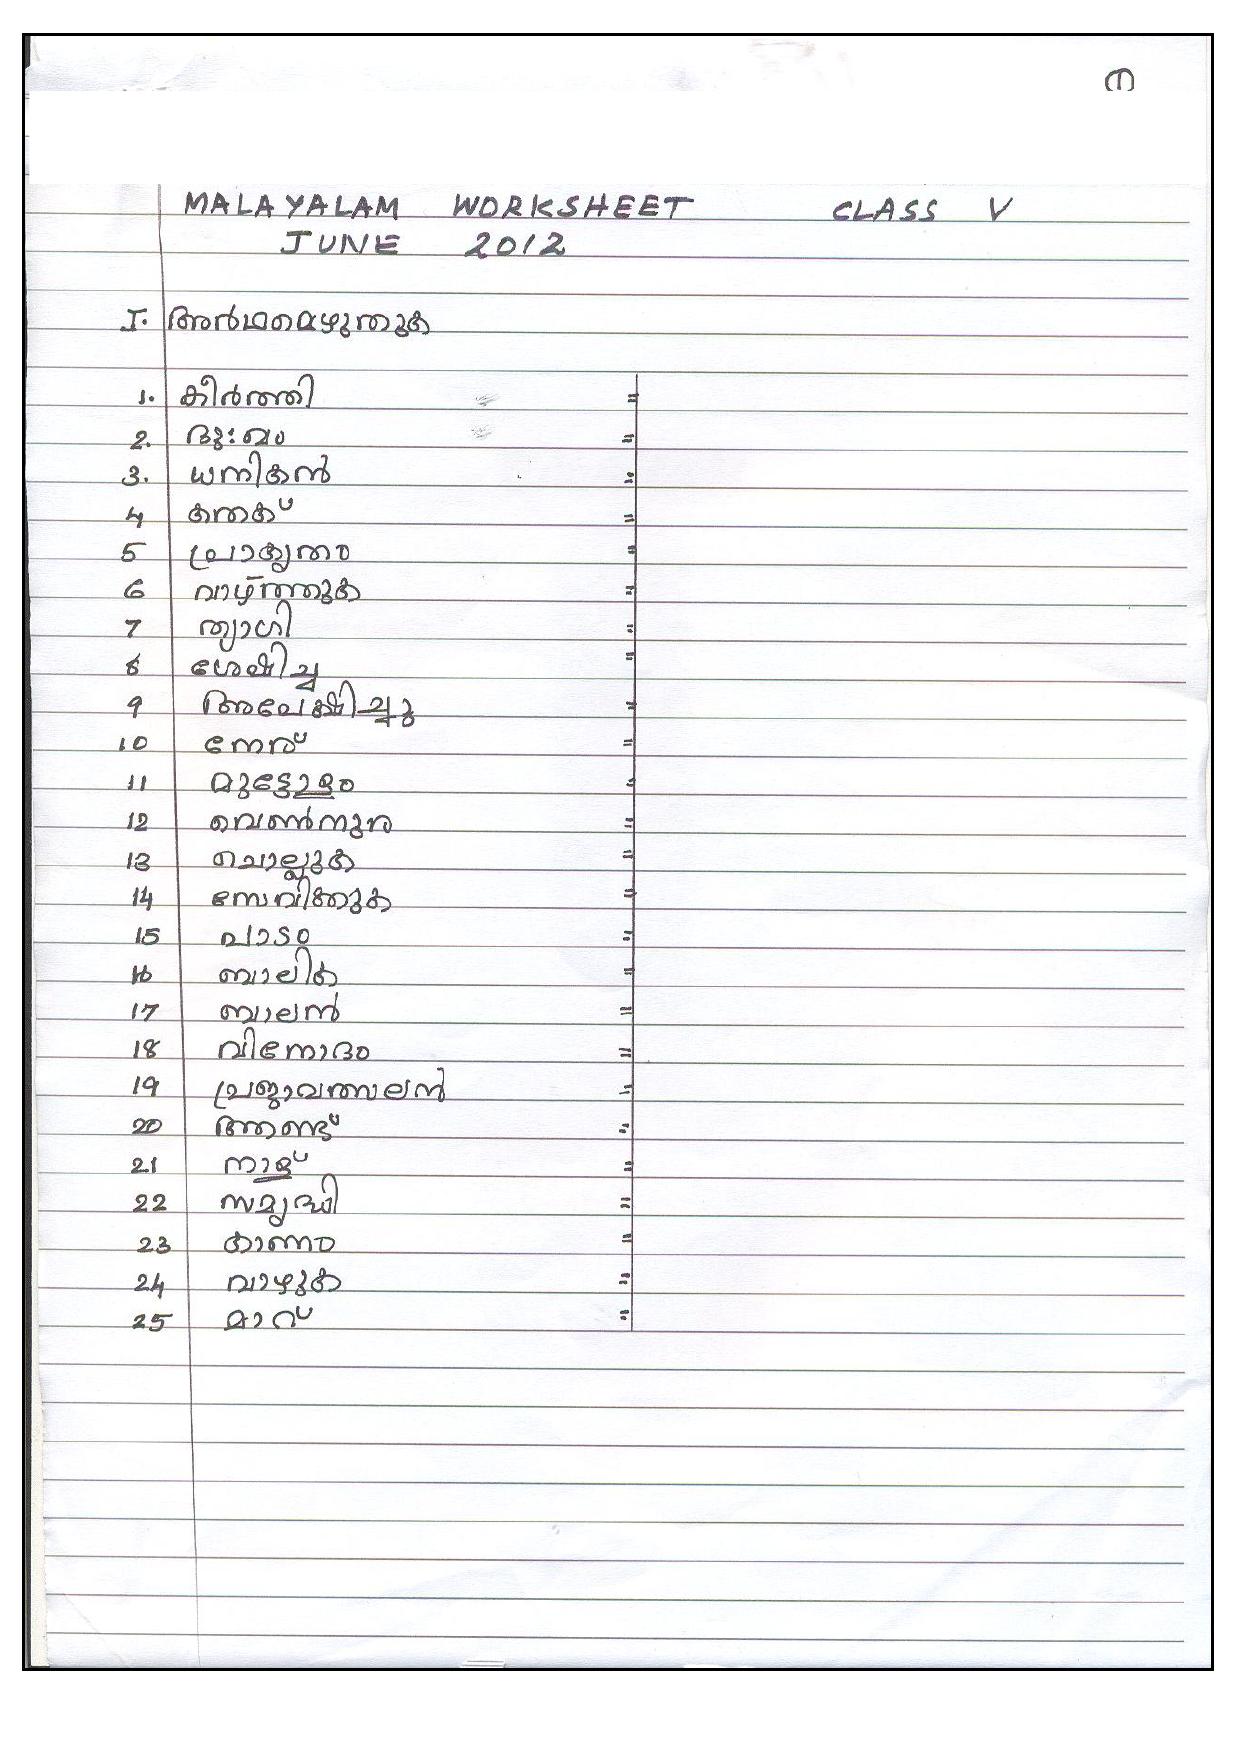 MALAYALAM WORKSHEET CLASS V
JUNE 2012
I. അർഥമെഴുതുക
1. കീർത്തി =
2. ദുഃഖം =
3. ധനികൻ =
4 കതക് =
5 പ്രാകൃതം =
6 വാഴ്ത്തുക =
7 ത്യാഗി =
8 ശേഷിച്ച =
9 അപേക്ഷിച്ചു =
10 നേര് =
11 മുട്ടോളം =
12 വെൺനുര =
13 ചൊല്ലുക =
14 സേവിക്കുക =
15 പാടം =
16 ബാലിക =
17 ബാലൻ =
18 വിനോദം =
19 പ്രജാവത്സലൻ =
20 ആണ്ട് =
21 നാള് =
22 സമൃദ്ധി =
23 കാണം =
24 വാഴുക =
25 മാറ് =